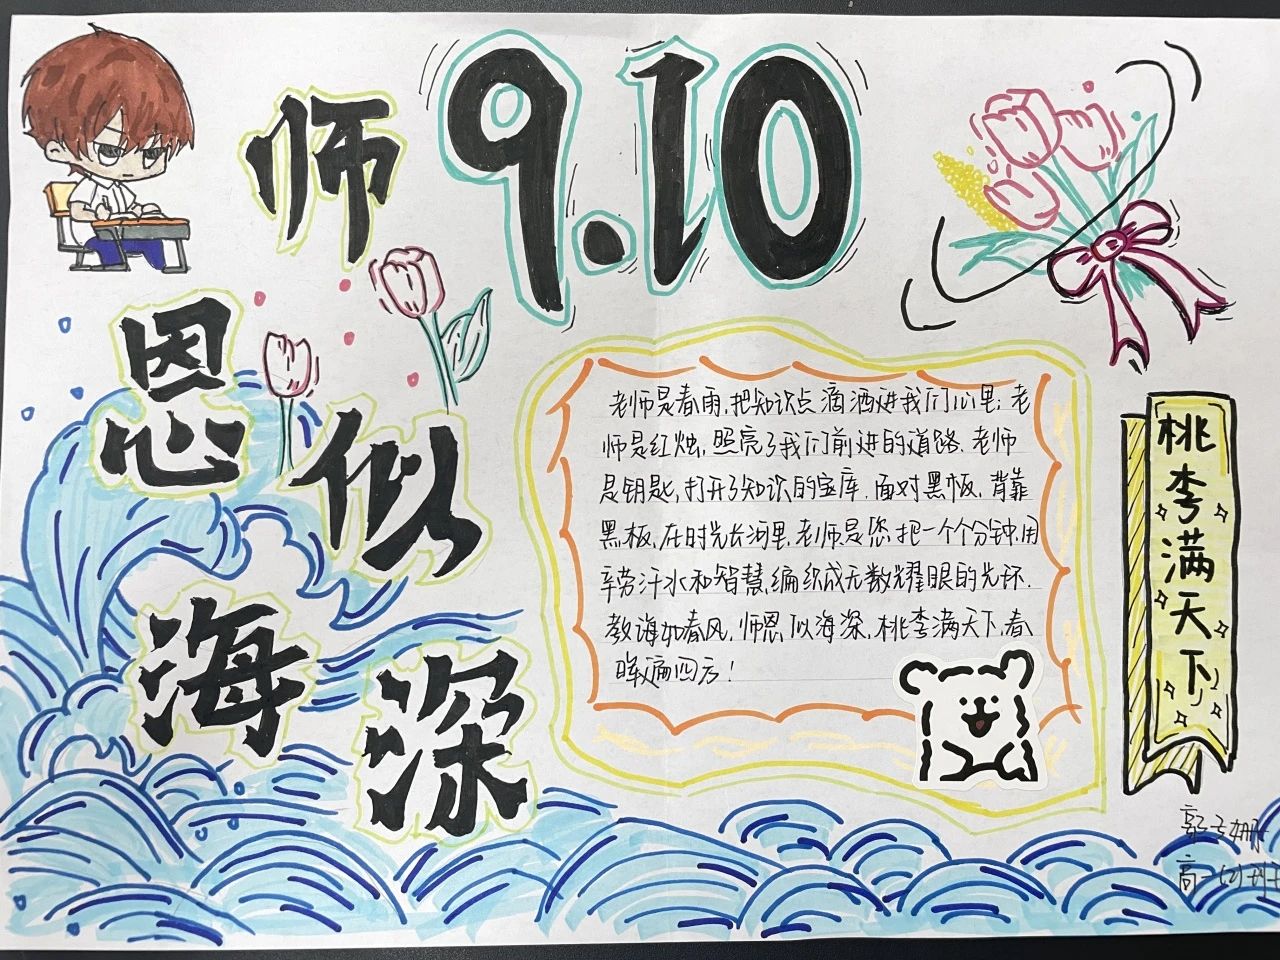 9.10
师
恩
似
海
深
老师是春雨,把知识点滴洒进我们心里;老
师是红烛,照亮了我们前进的道路.老师
是钥匙,打开了知识的宝库.面对黑板,背靠
黑板,在时光长河里,老师是您把一个个分钟,用
辛劳汗水和智慧,编织成无数耀眼的光环.
教诲如春风,师恩似海深,桃李满天下,春
晖遍四方!
桃李满天下
高一
班